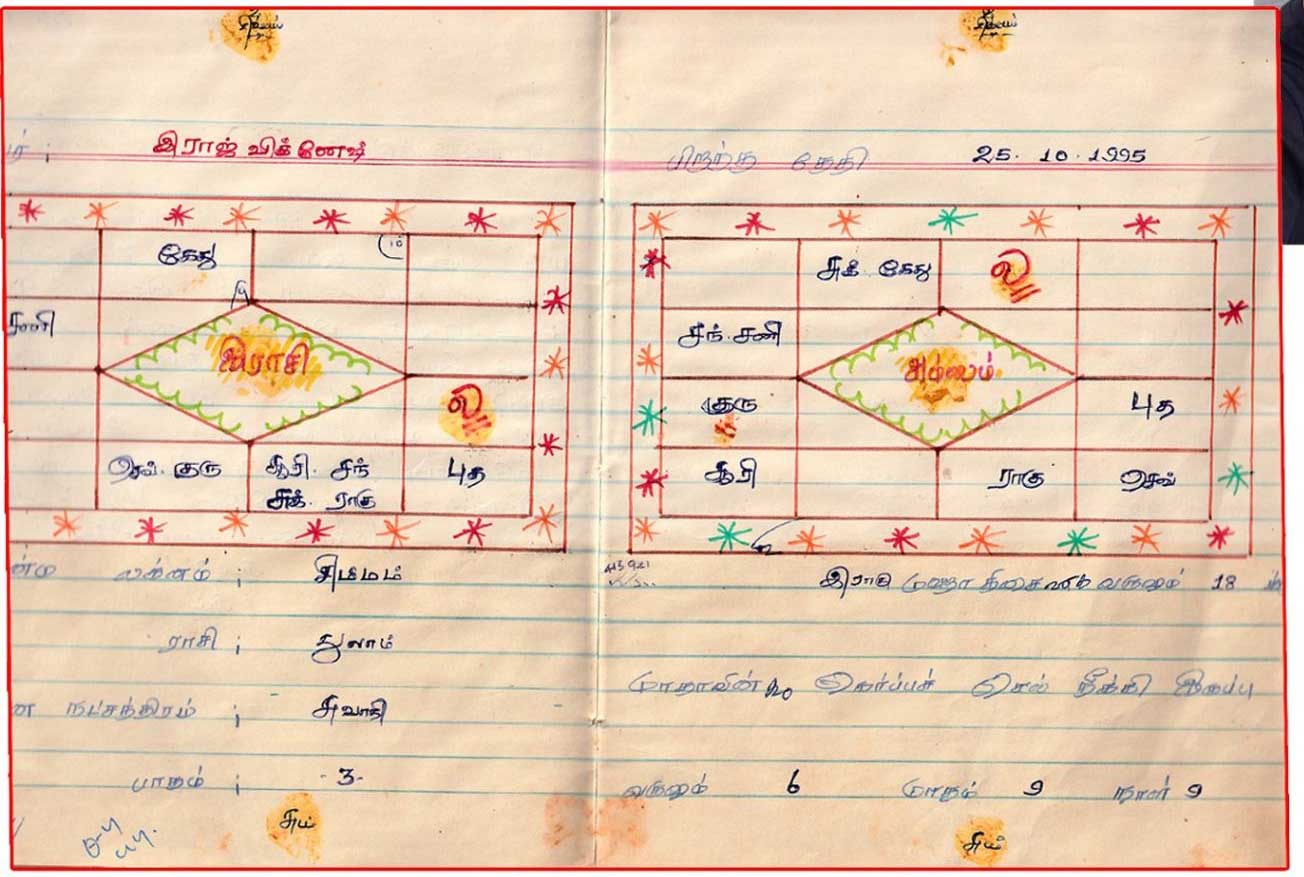 சிவமயம்
சிவமயம்
ர் ; இராஜ் விக்னேஷ்
பிறந்த தேதி 25. 10. 1995
கேது
10
சனி
இராசி
ல//
செவ். குரு
சூரி. சந்
சுக். ராகு
புத
சுக். கேது
ல//
சந். சனி
அம்சம்
குரு
புத
சூரி
ராகு
செவ்
ன்ம லக்னம் ; சிம்மம்
ராசி ; துலாம்
ன நட்சத்திரம் ; சுவாதி
பாதம் ; 3.
இராகு மஹா திசை வருஷம் 18
மாதாவின் கெர்ப்பச் செல் நீக்கி இருப்பு
வருஷம் 6 மாதம் 9 நாள் 9
சுபம்
சுபம்